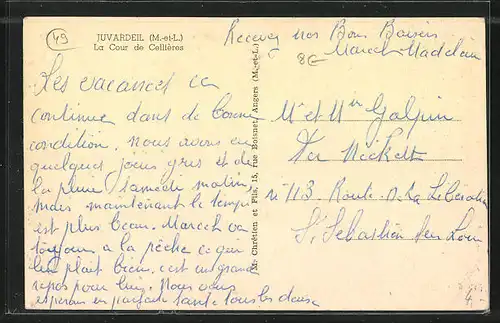 49
JUVARDEIL (M.-et-L.)
La Cour de Cellières
Recevez nos Bons Baisers
Marcel Madeleine
8€
Les vacances ca
continue dans de bonne
condition, nous avons eu
quelques jours gris et de
la pluie Samedi matin,
mais maintenant le temps
est plus beau. Marcel va
toujours a la pêche ce qui
lui plait bien, c'est un grand
repos pour lui. Nous vous
esperons en parfaite santé tous les deux
M. Chrétien et Fils, 15, rue Boisnet, Angers (M.-et-L.)
Mr et Mme Galpin
n° 113 Route de La Libération
St Sébastien sur Loire
4.-